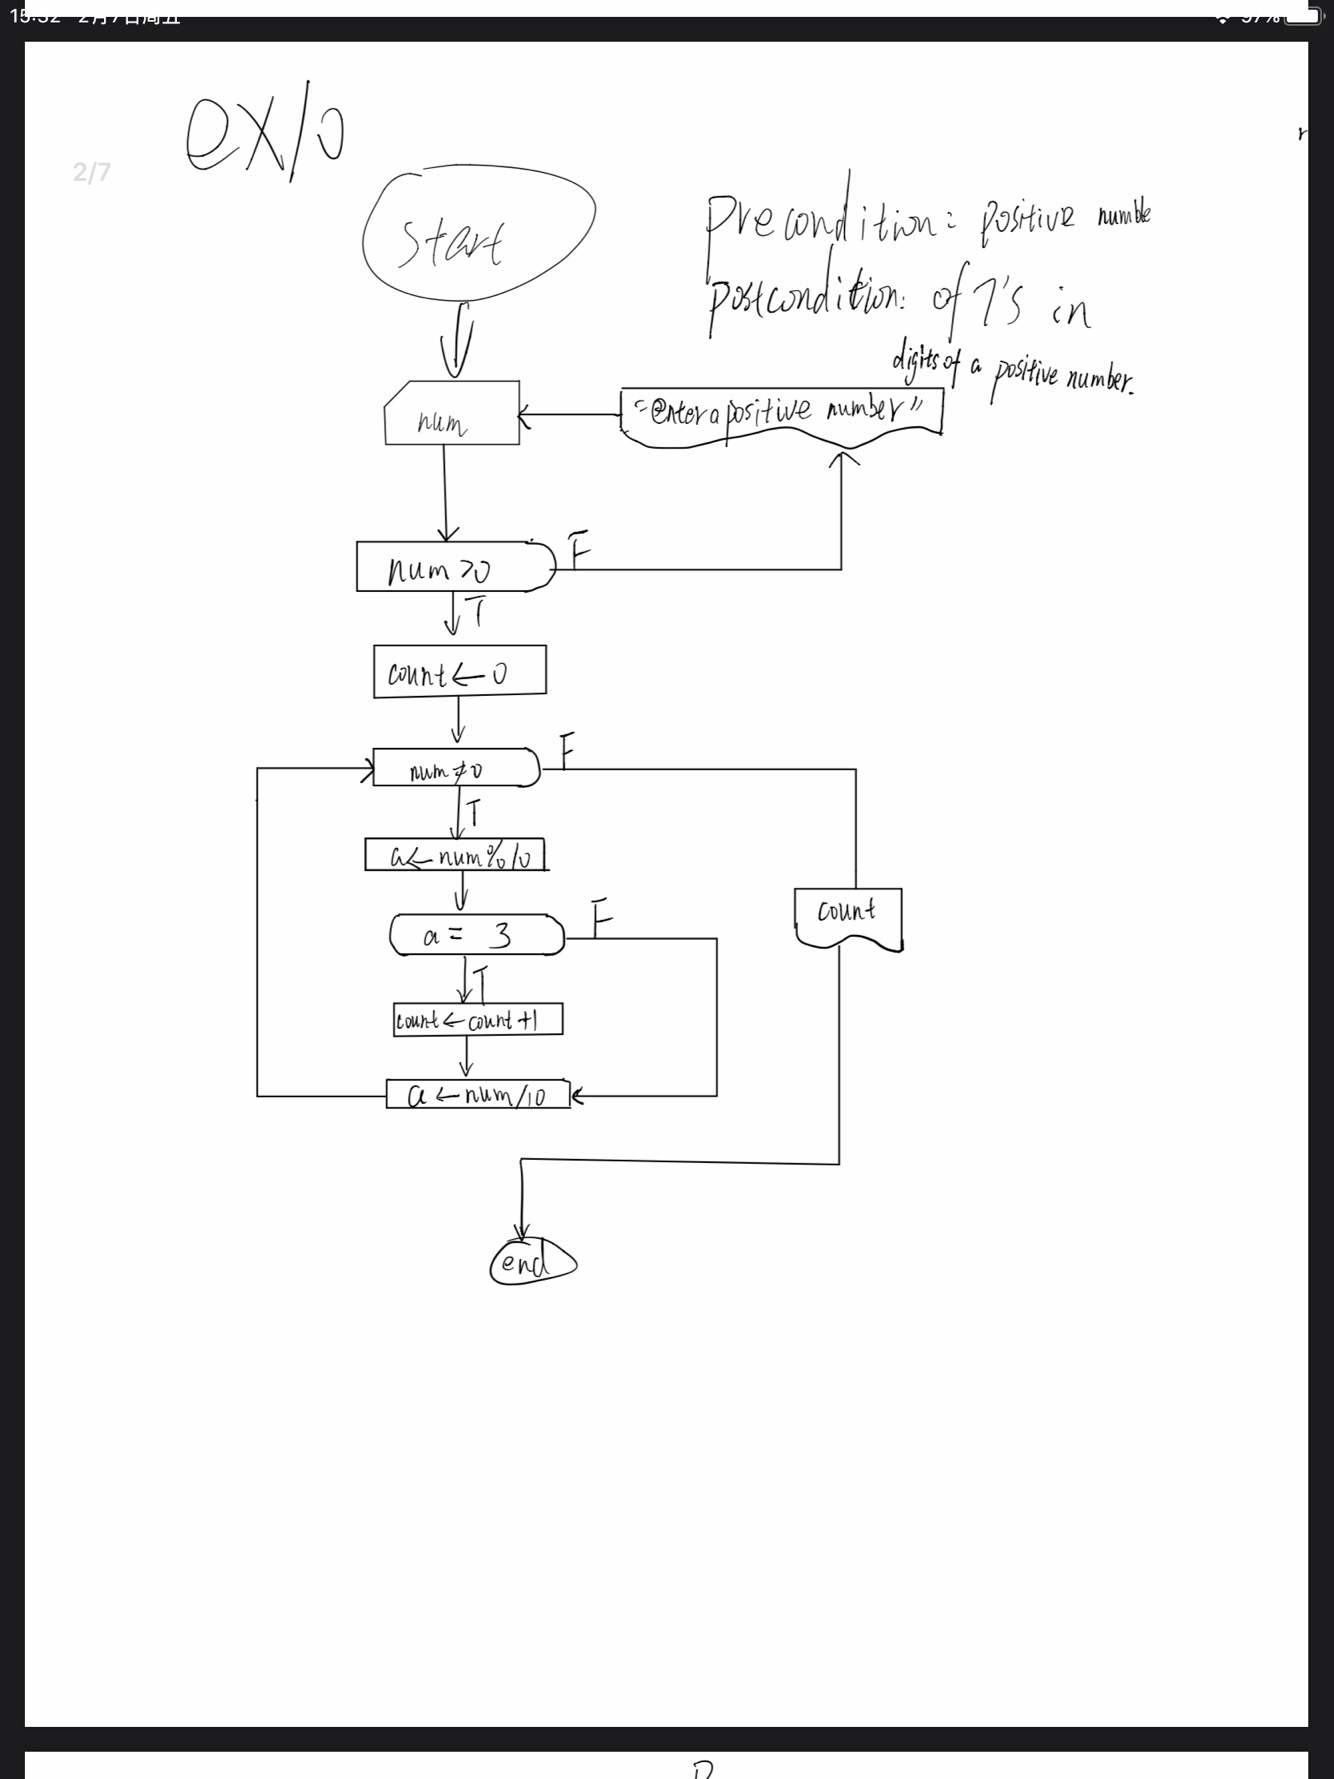 ex10
2/7
start
Precondition: positive numble
postcondition: of 7's in
digits of a positive number.
num
"enter a positive number"
num >0
F
T
count ← 0
num ≠ 0
F
T
a ← num % 10
a = 3
F
T
count ← count +1
a ← num/10
count
end